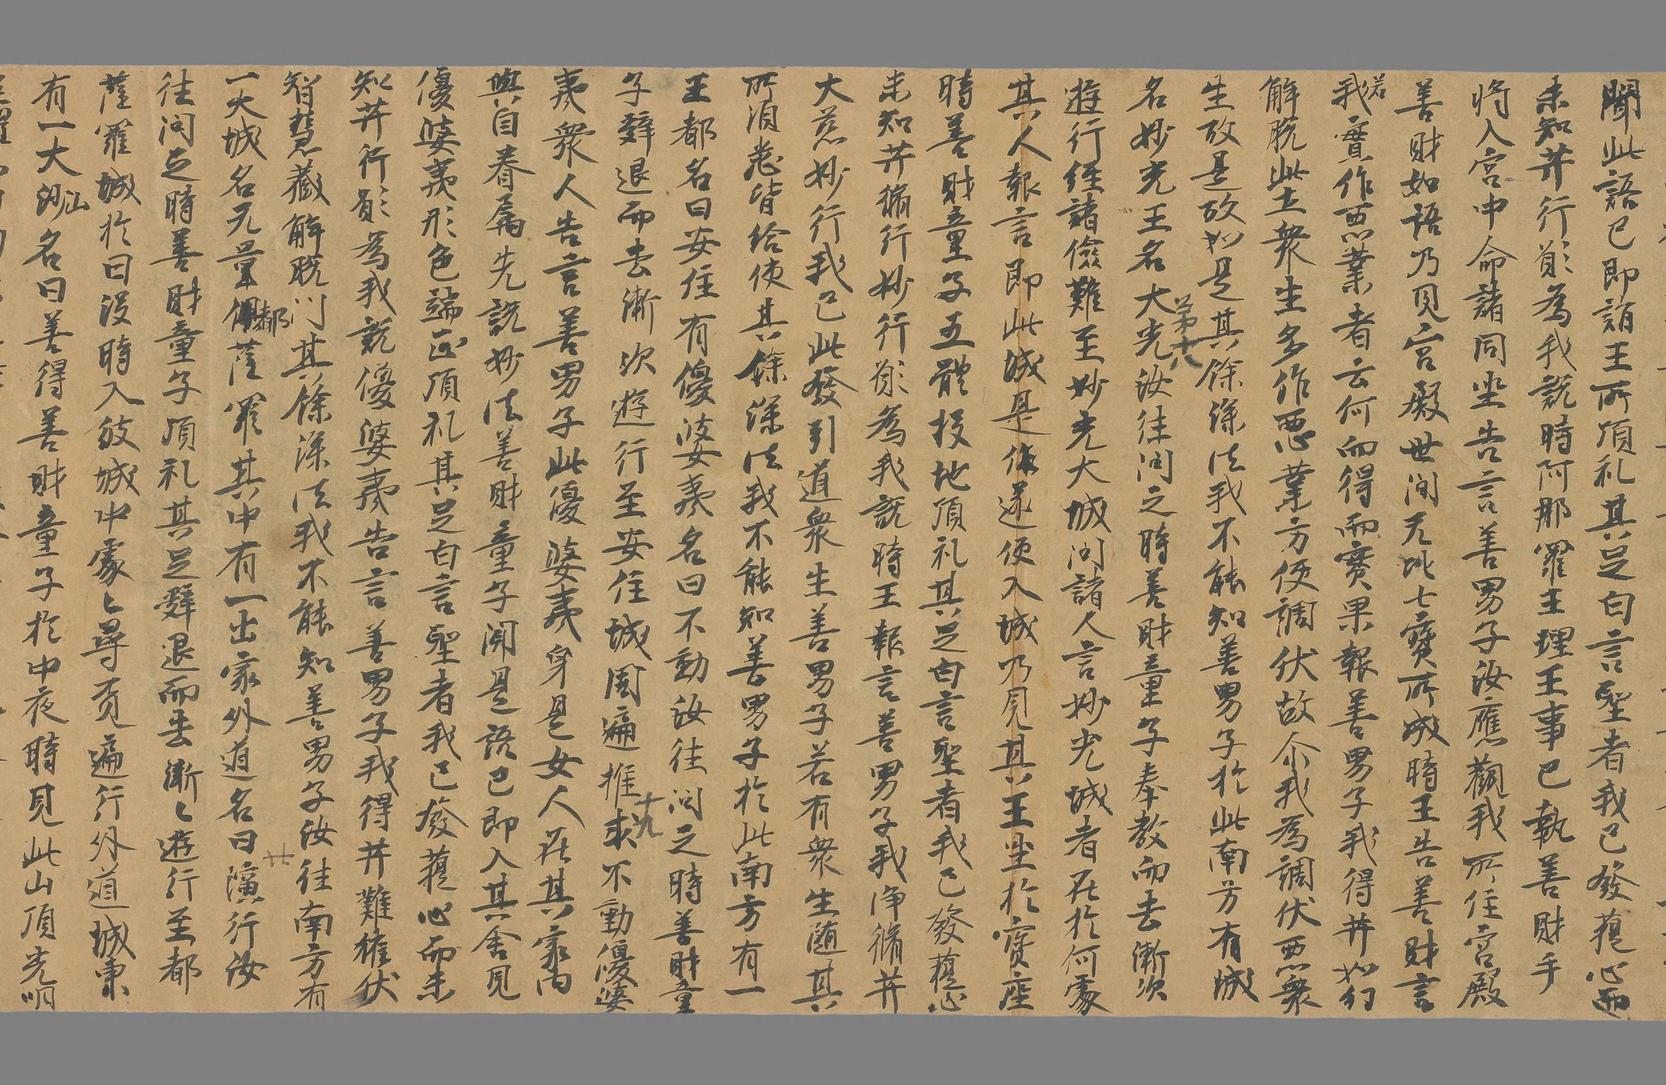 聞此語已即詣王所頂礼其足白言聖者我已發菩提心而
未知菩薩行願為我說時阿那羅王理王事已執善財手
將入宮中命諸同坐告言善男子汝應觀我所住宮殿
善財如語乃見宮殿世間无比七寶所成時王告善財言
我若實作惡業者云何而得而實果報善男子我得菩薩如幻
解脫此土衆生多作惡業方便調伏故尒我為調伏惡衆
生故是故如是其餘深法我不能知善男子於此南方有城
名妙光王名大光汝往問之時善財童子奉教而去漸次
第十八
遊行經諸儉難至妙光大城問諸人言妙光城者在於何處
其人報言即此城是依遂便入城乃見其王坐於寶座
時善財童子五體投地頂礼其足白言聖者我已發菩提心
未知菩薩脩行妙行願為我說時王報言善男子我淨脩菩薩
大慈妙行我已此發引道衆生善男子若有衆生隨其
所須悉皆給使其餘深法我不能知善男子於此南方有一
王都名曰安住有優婆夷名曰不動汝往問之時善財童
子辭退而去漸次遊行至安住城周遍推求不動優婆
十九
夷衆人告言善男子此優婆夷身是女人在其家内
與自眷屬先說妙法善財童子聞是語已即入其舍見
優婆夷形色端正頂礼其足白言聖者我已發菩提心而未
知菩薩行願為我說優婆夷告言善男子我得菩薩難摧伏
智慧藏解脫門其餘深法我不能知善男子汝往南方有
一大城名无量都薩羅其中有一出家外道名曰遍行汝
廿
往問之時善財童子頂礼其足辭退而去漸〻遊行至都
薩羅城於日沒時入彼城中處〻尋覓遍行外道城東
有一大山名曰善得善財童子於中夜時見此山頂光明